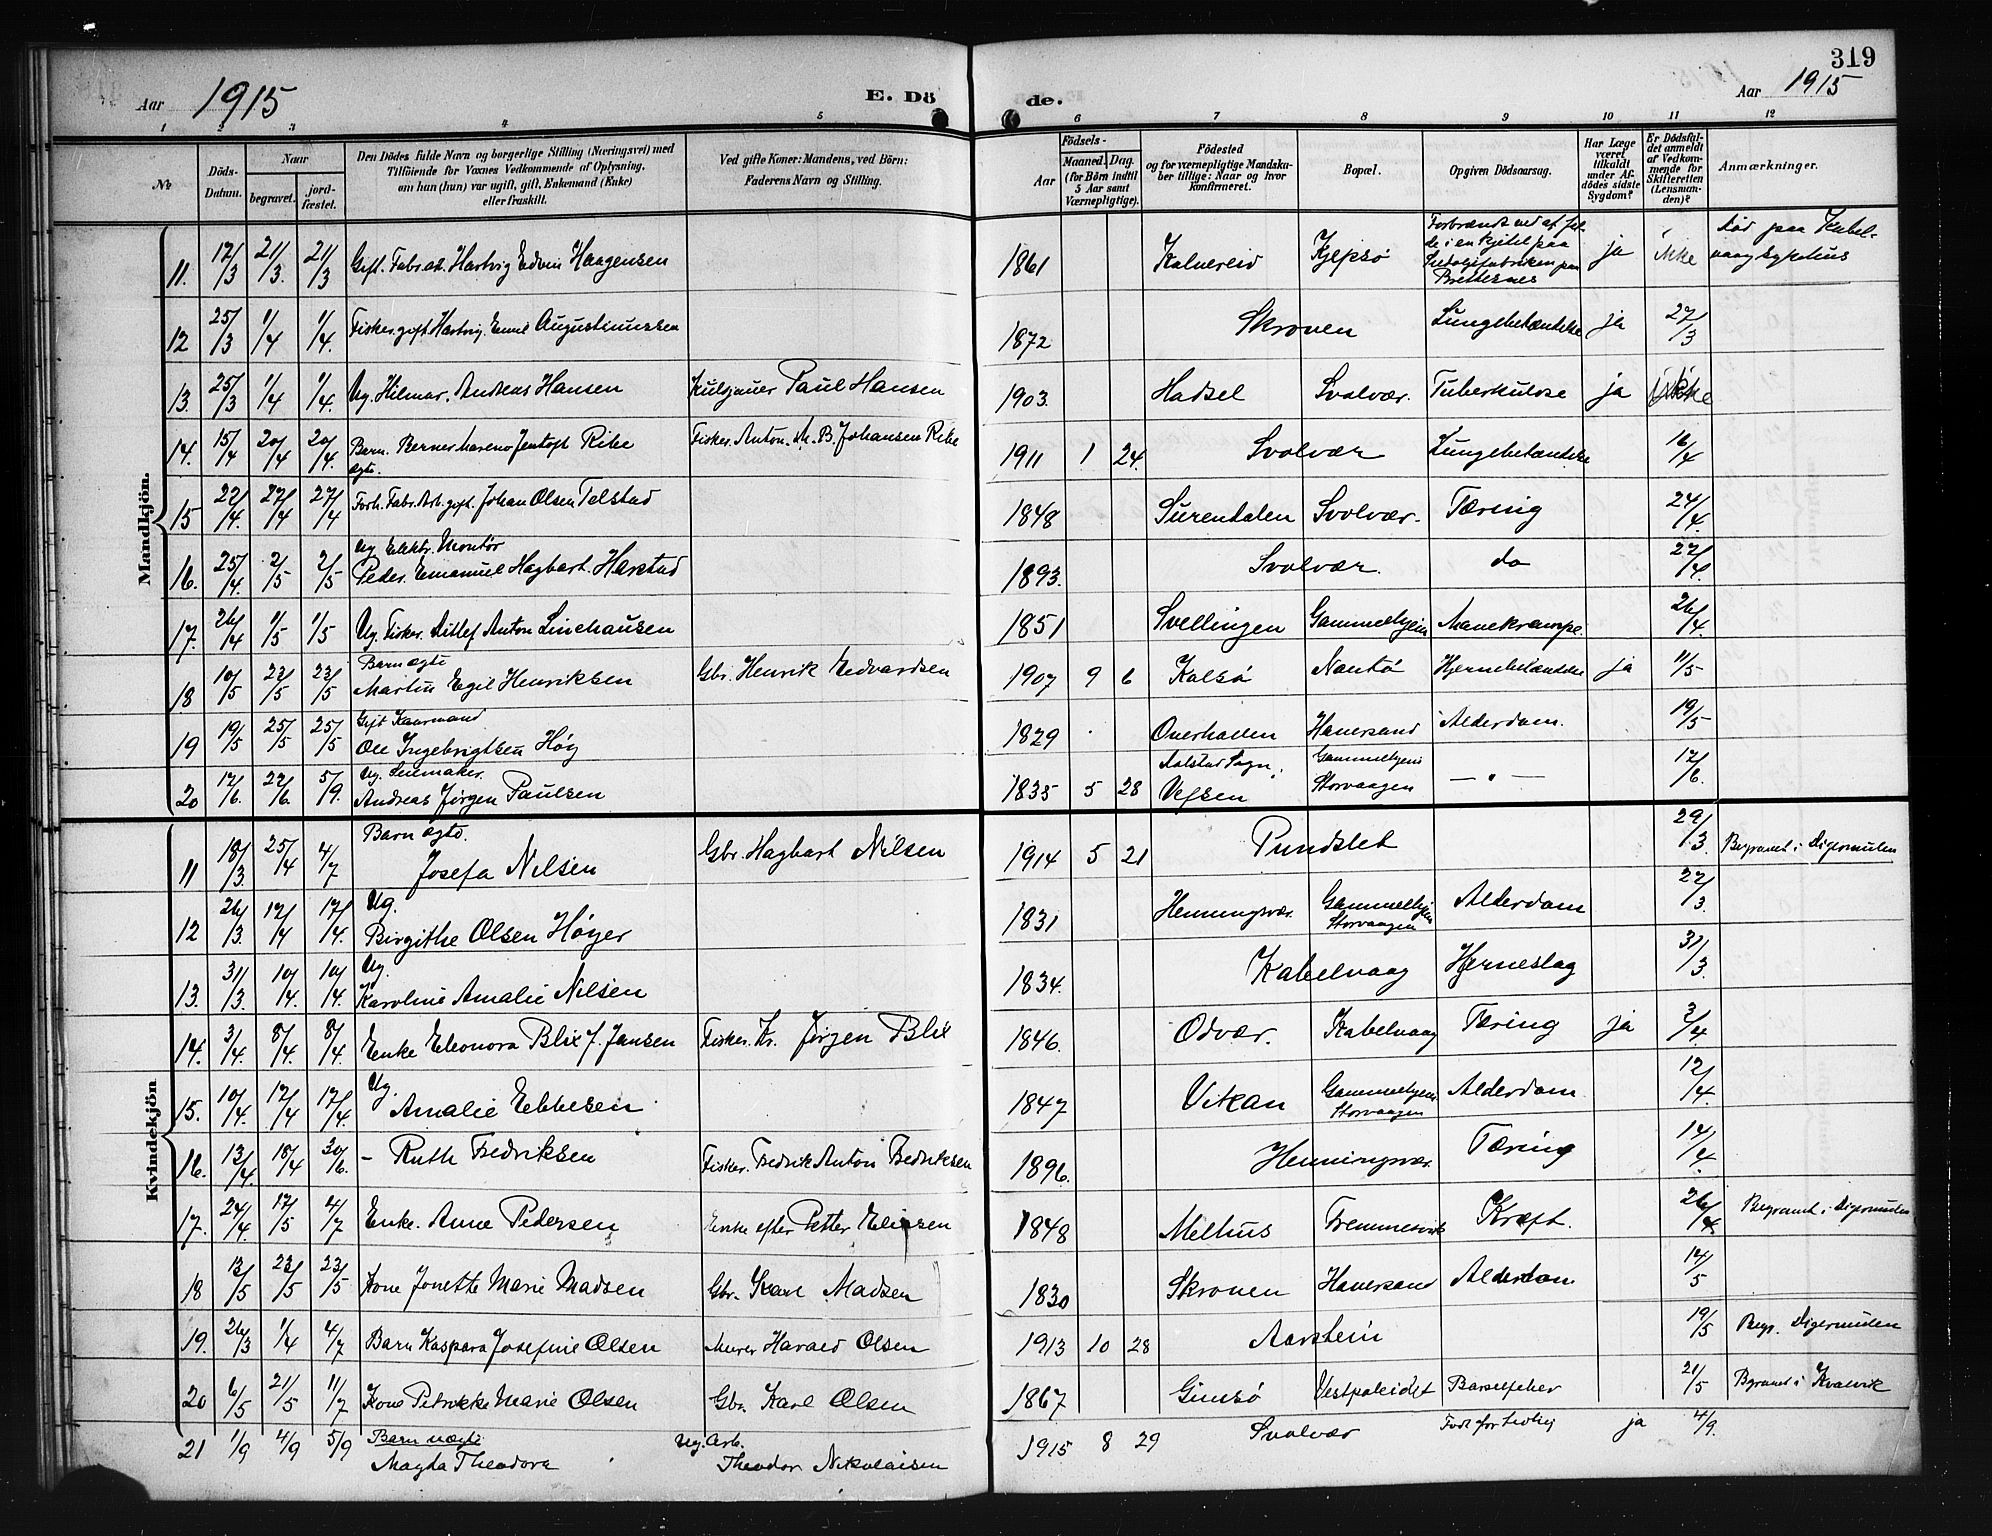 319
Aar 1915 E. Dö de. Aar 1915
1 2 3 4 5 6 7 8 9 10 11 12
№ Döds-Datum. Naar begravet. jordfæstet. Den Dödes fulde Navn og borgerlige Stilling (Næringsvei) med Tilföiende for Voxnes Vedkommende af Oplysning, om han (hun) var ugift, gift, Enkemand (Enke) eller fraskilt. Ved gifte Koner: Mandens, ved Börn: Faderens Navn og Stilling. Födsels- Aar Maaned. Dag. (for Börn indtil 5 Aar samt Værnepligtige). Födested og for værnepligtige Mandskaber tillige: Naar og hvor konfirmeret. Bopæl. Opgiven Dödsaarsag. Har Læge været tilkaldt under Afdödes sidste Sygdom? Er Dödsfaldet anmeldt af Vedkommende for Skifteretten (Lensmanden)? Anmærkninger.
Mandkjön.
11. 17/3 21/3. 21/3 Gift. Fabr.arb. Hartvig Edvin Haagensen 1861 Kalvereid Kjepsö Forbrændt ved at falde i en kjedel paa Sildoljefabriken paa Brettesnes ja ikke Död paa Kabelvaag sykehus
12 25/3 1/4 1/4. Fisker. gift. Hartvig. Emil Augustinussen 1872 Skroven Lungebetændelse ja 27/3
13. 25/3 1/4 1/4. Ug. Hilmar. Andreas Hansen Paul Hansen 1903. Hadsel Svolvær. Tuberkulose ja ikke
14. 15/4 20/4 20/4. Barn. ægte. Berner Jentoft Ribe Fisker. Anton. M. B. Johansen Ribe 1911 1 24. Svolvær Lungebetændelse 16/4
15 22/4. 27/4 27/4 Forh. Fabr. Arb. gift. Johan Olsen Telstad 1848 Surendalen Svolvær. Tæring 24/4.
16. 25/4 2/5 2/5 Ug Elektr. Montör Peder. Emanuel Hagbart Harstad 1893. Svolvær. do 27/4
17. 26/4 1/5 1/5 Ug. Fisker. Ditlef Anton Linehausen 1851 Svellingen Gammelhjem Mavekrampe. 26/4.
18 10/5 23/5 23/5 Barn ægte Martin Egil Henriksen Gbr. Henrik Edvardsen 1907 9 6 Kalsö Naustö Hjernebetændelse ja 11/5
19 19/5 25/5 25/5 Gift Kaurmand Ole Ingebrigtsen Høy 1829 Overhallen Haversand Alderdom. 19/5
20 17/6. 22/6 5/9. Ug. Seilmaker. Andreas Jørgen Paulsen 1835 5 28 Alstad Sogn, Vefsen Gammelhjem Storvaagen — " — 17/6.
Kvindekjön.
11 18/3 25/4 4/7 Barn ægte. Josefa Nilsen Gbr. Hagbart Nilsen 1914 5 21 Pundslet 29/3 Begravet i Digermulen
12 26/3 17/4 17/4. Ug. Birgithe Olsen Høyer 1831 Henningsvær. Gammelhjem Storvaagen Alderdom 27/3
13. 31/3 10/4. 10/4. Ug. Karoline Amalie Nilsen 1834. Kabelvaag Hjerneslag 31/3
14. 3/4. 8/4. 8/4. Enke Eleonora Blix f. Jansen Fisker. Kr. Jørgen Blix 1846. Odvær. Kabelvaag Tæring ja 3/4
15. 10/4. 17/4 17/4. Ug Amalie Ebbesen 1847 Vikan Gammelhjem Storvaagen Alderdom 12/4.
16. 13/4. 18/4 30/6. – Ruth Fredriksen Fisker. Fredrik Anton Fredriksen 1896. Henningsvær. Tæring 14/4
17. 24/4 17/5 4/7 Enke. Anne Pedersen Enke efter Petter Eliesen 1848 Melhus Fremmesvik Kræft. 26/4. Begravet i Digermulen
18 13/5 23/5 23/5 Kone Jonette Marie Madsen Gbr. Karl Madsen 1830 Skroven Haversand Alderdom 14/5
19. 26/3 1/4 4/7 Barn Kaspara Josefine Olsen Murer Harald Olsen 1913 10 28 Aarstein 19/5 Begr. Digermulen
20 6/5 21/5 11/7 Kone Petrikke Marie Olsen Gbr. Karl Olsen 1867 Gimsö Vestpoleidet Barselfeber 21/5 Begravet i Kvalvik
21 1/9 4/9 5/9 Barn uægte Magda Theodora Ug. Arb. Theodor Nikolaisen 1915 8 29 Svolvær Födt for tidlig ja 4/9.